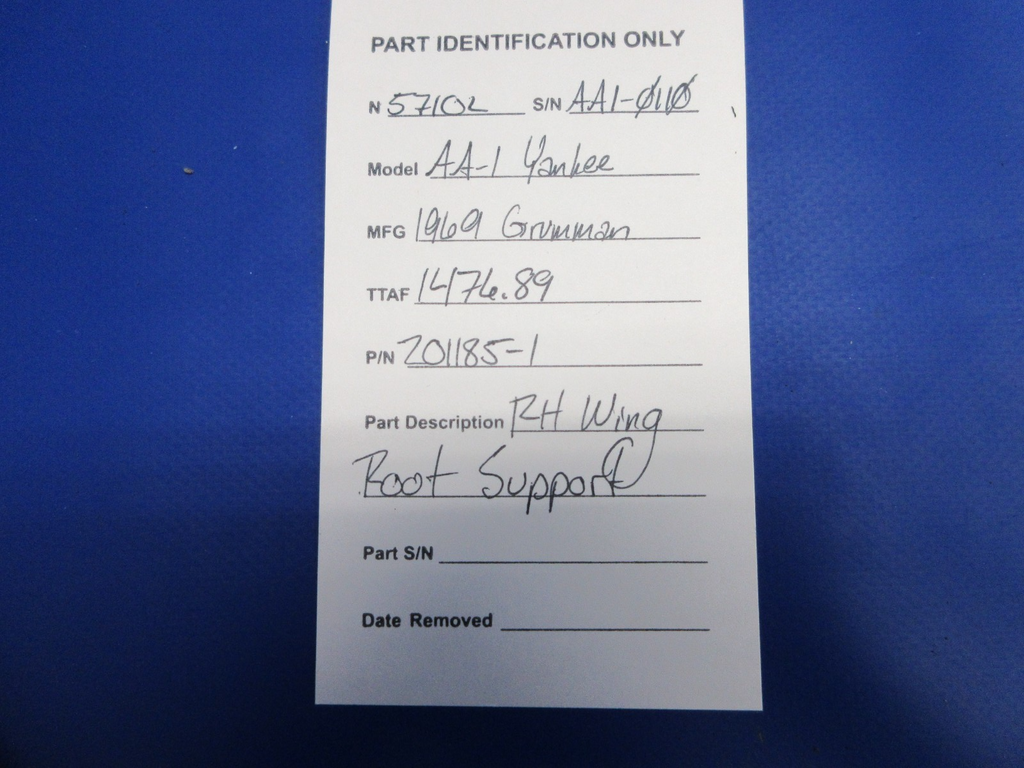 PART IDENTIFICATION ONLY
N 57102 S/N AA1-Ø11Ø
Model AA-1 Yankee
MFG 1969 Grumman
TTAF 1476.89
P/N 201185-1
Part Description RH Wing
Root Support
Part S/N
Date Removed